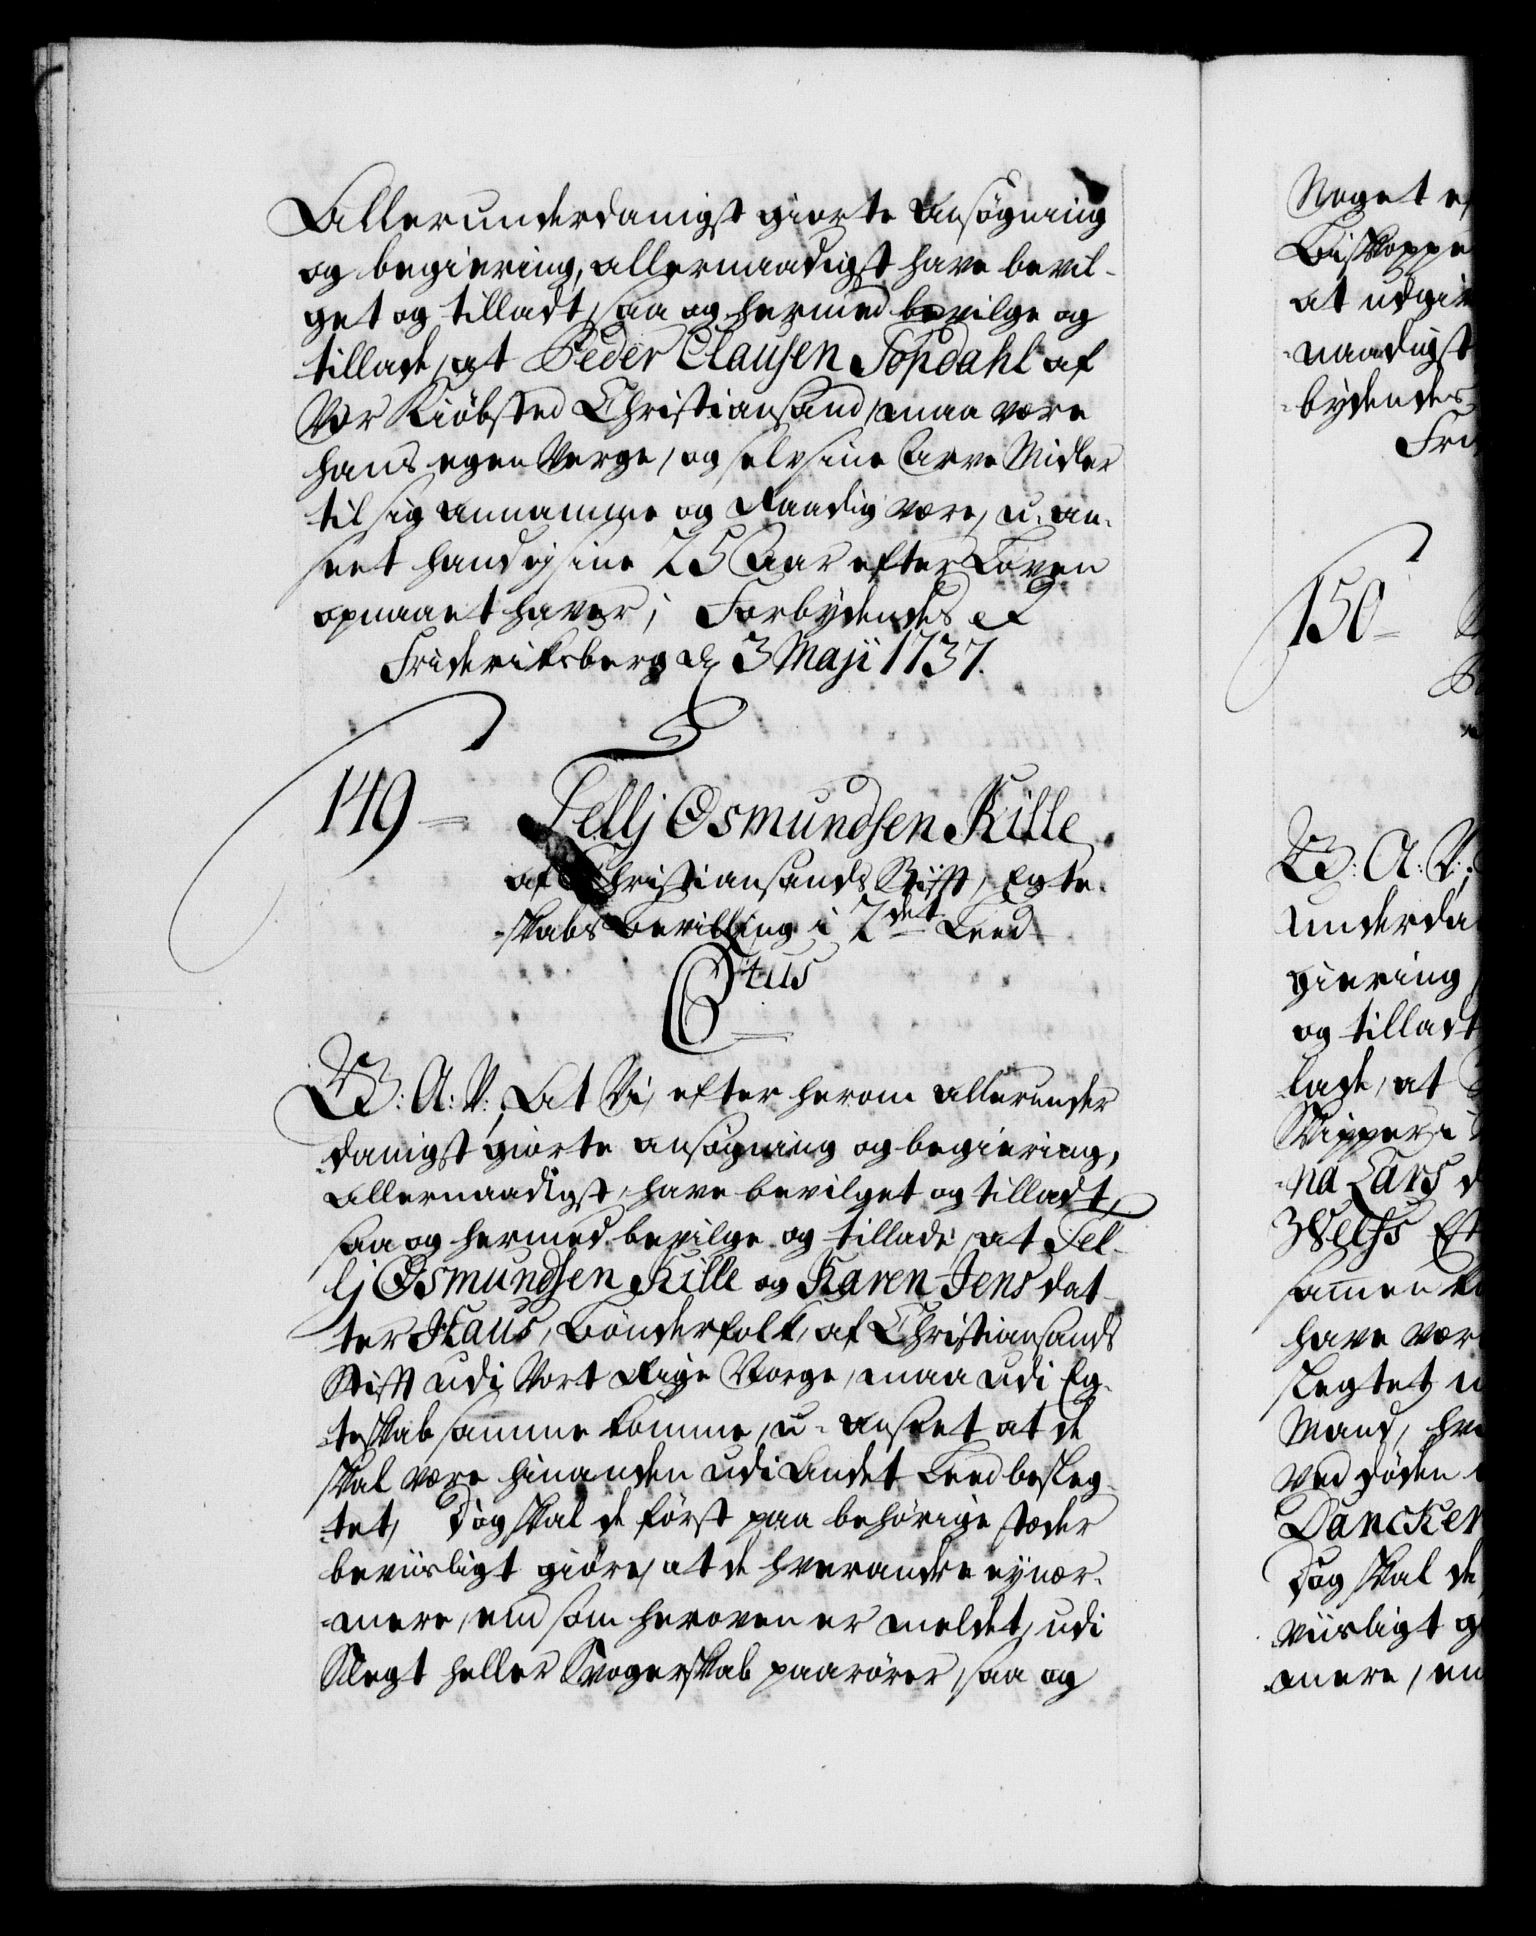 Allerunderdanigst giorte Ansøgning
og begiering, allernaadigst have bevil-
get og tilladt, saa og hermed bevilge og
tillade, at Peder Clausen Topdahl af
Vor Kiøbsted Christiansand, maa være
hans egen Verge, og selv sine Arve Midler
til sig annamme og Raadig være, u-an-
seet hand ej sine 25 Aar efter Loven
opnaaet haver; Forbydendes etc
Friderichsberg d. 3 Maji 1737.
149 - Tellj Osmundsen Kille
af Christiansands Stifft, Egte-
-skabs Bevilling i 2det Leed
Ctus
W: A: V:, At Vi, efter herom allerunder
danigst giorte ansøgning og begiering,
allernaadigst, have bevilget og tilladt,
saa og hermed bevilge og tillade, at Tel-
lj Osmundsen Kille og Karen Jensdat-
ter Haus, Bønderfolk, af Christiansands
Stifft udi Vort Rige Norge, maa udi Eg-
teskab samme komme, u-anseet at de
skal være hinanden udi Andet Leed besleg-
tet, Dog skal de først paa behørige stæder
beviisligt giøre, at de hverandre ey nær-
mere, end som heroven er meldet, udi
Slegt heller Svogerskab paarører, saa og
Noget e
Biskoppe
at udgiv
naadigst
bydendes
Fri
150 -
W: A: V:,
underda
giering
og tilladt
lade, at
Skipper i
na Lars d
Welfs Et
sammen k
have vær
slegtet m
Mand, hv
ved døden
Dancker
Dog skal de
viisligt g
mere, en